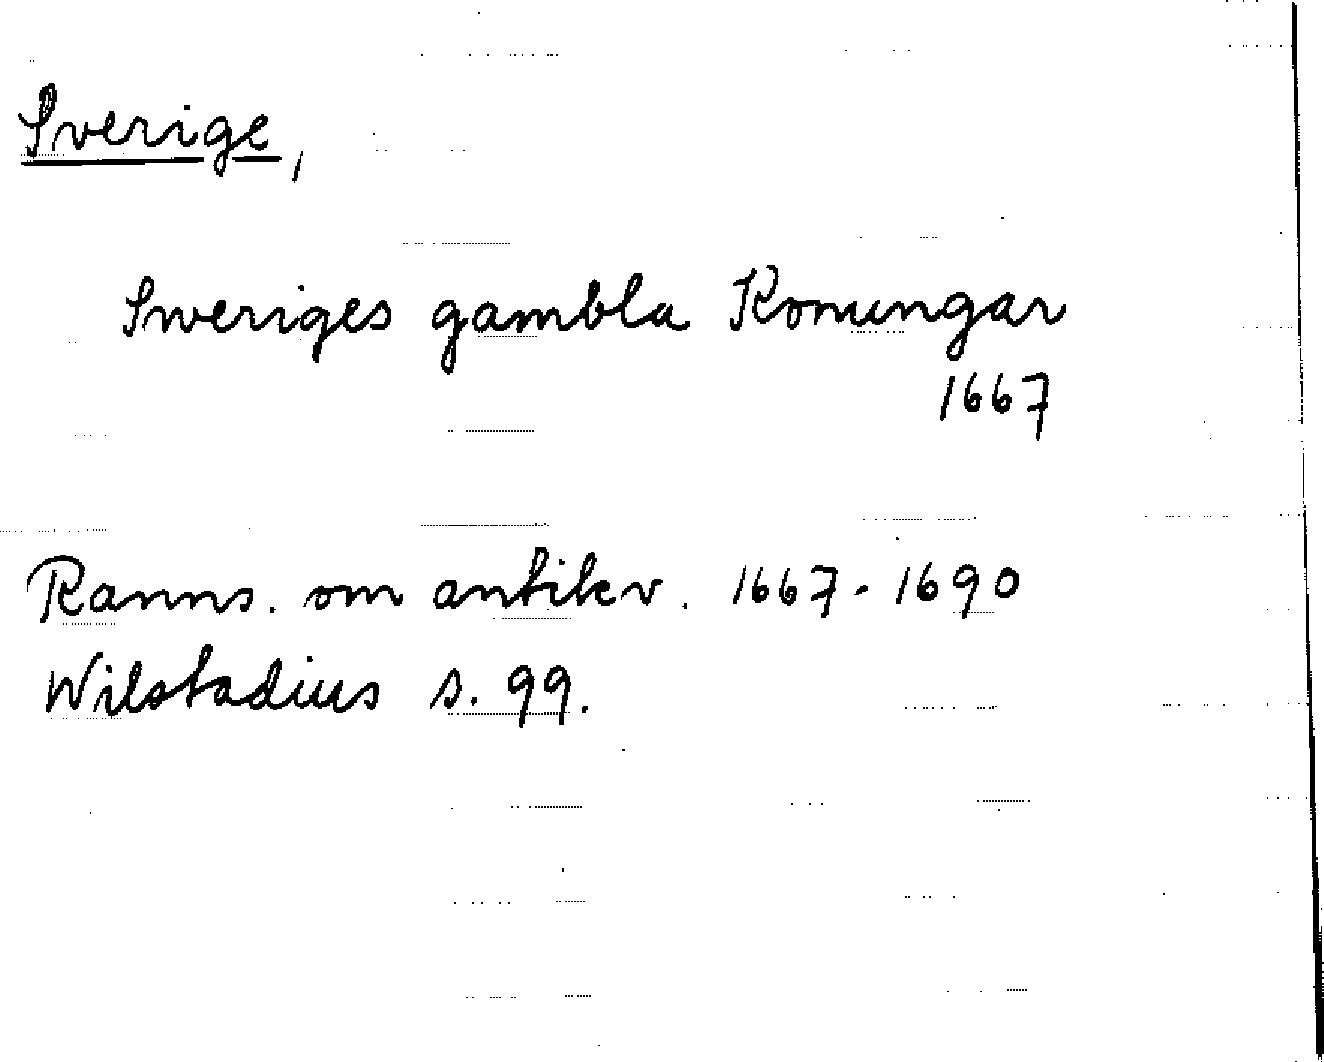 Sverige,
Sweriges gambla Konungar
1667
Ranns. om antikv. 1667-1690
Wilstadius s. 99.